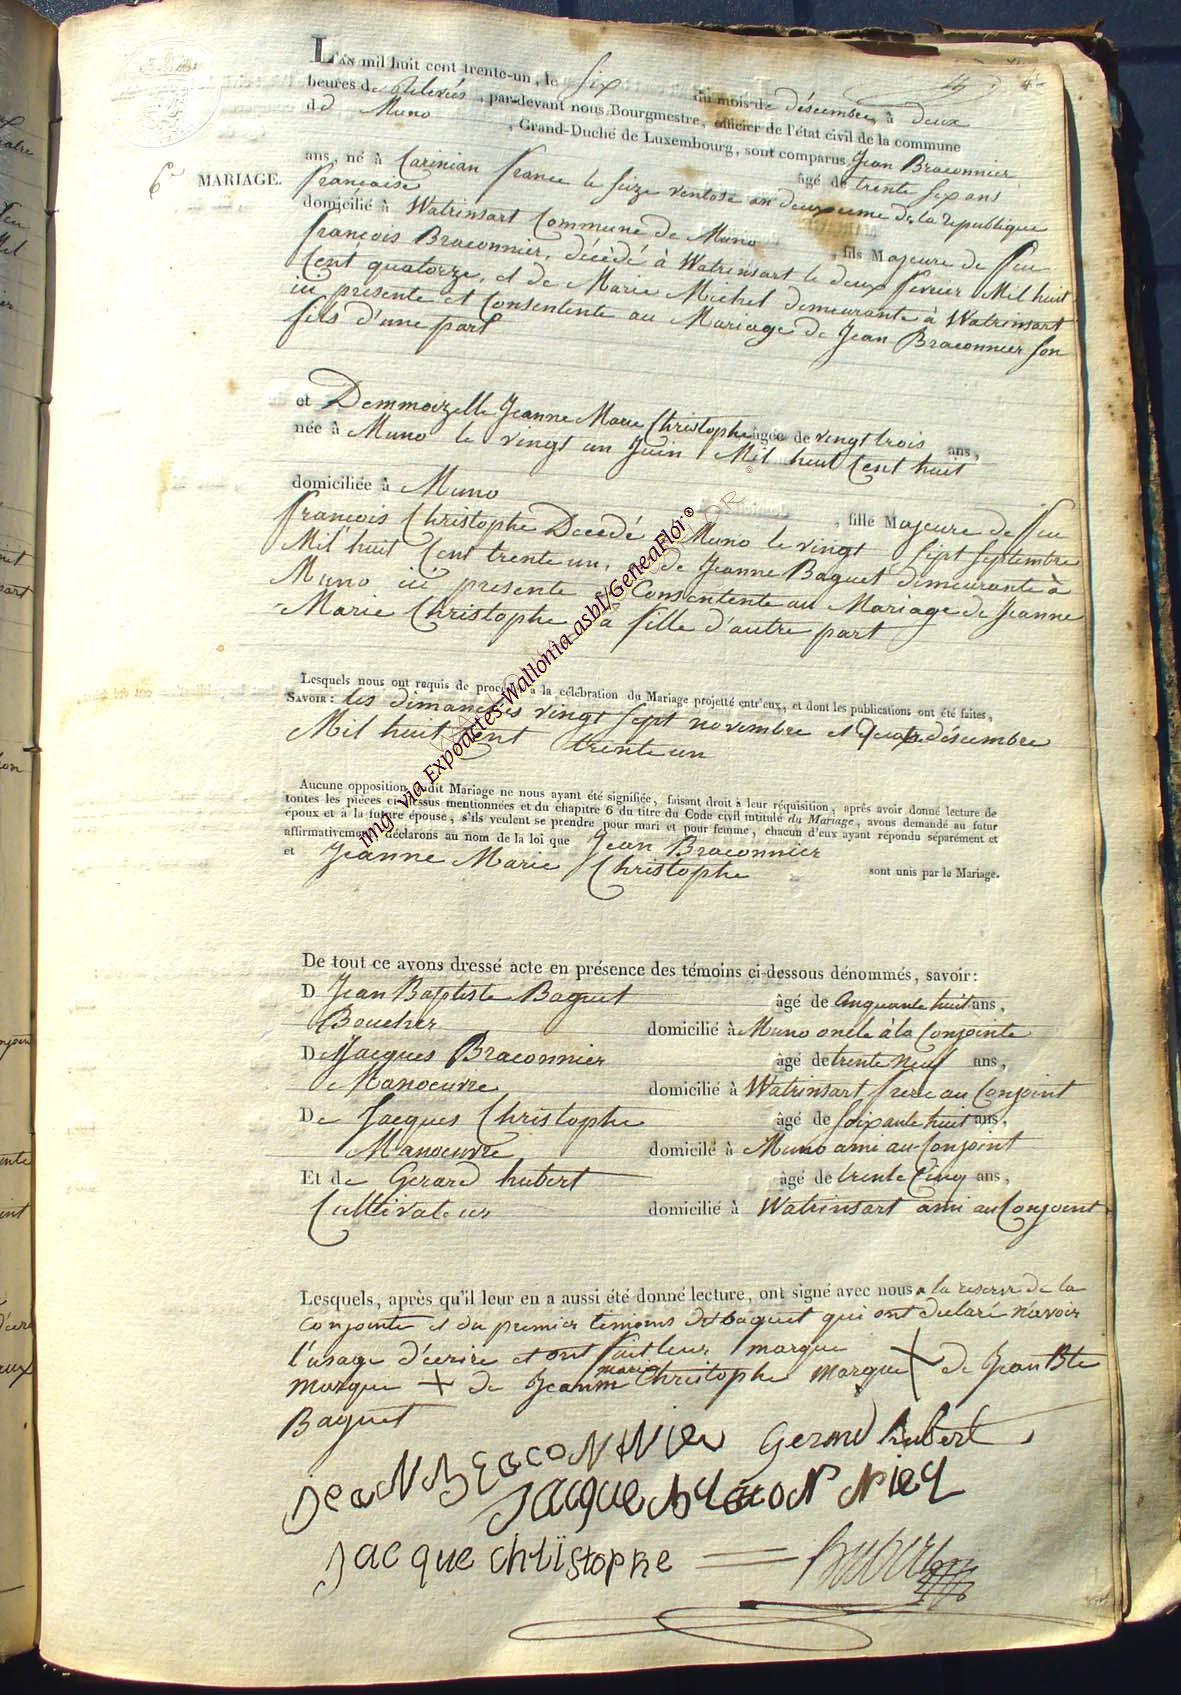 L'an mil huit cent trente-un, le six du mois de désembre, à deux
heures de relevés, par-devant nous Bourgmestre, officier de l'état civil de la commune
de Muno, Grand-Duché de Luxembourg, sont comparus Jean Braconnier
âgé de trente six ans
6e MARIAGE.
ans, né à Carinian france le seize ventose an deuxieme de la republique
francaise
domicilié à Watrinsart Commune de Muno, fils Majeure de feu
francois Braconnier, décèdé à Watrinsart le deux fevrier Mil huit
Cent quatorze, et de Marie Michel demeurante à Watrinsart
ici presente et Consentente au Mariage de Jean Braconnier son
fils d'une part
et Demmoizelle Jeanne Marie Christophe âgée de vingt trois ans,
née à Muno le vingt un Juin Mil huit Cent huit
domiciliée à Muno, fille Majeure de feu
francois Christophe Decedé Muno le vingt sept septembre
Mil huit Cent trente un, de Jeanne Baguet demeurante à
Muno ici presente Consentente au Mariage de Jeanne
Marie Christophe sa fille d'autre part
Lesquels nous ont requis de procéder à la célébration du Mariage projetté entr'eux, et dont les publications ont été faites,
SAVOIR : les dimanches vingt sept novembre et quatre désembre
Mil huit Cent trente un
Aucune opposition audit Mariage ne nous ayant été signifiée, faisant droit à leur réquisition, après avoir donné lecture de
toutes les pièces ci-dessus mentionnées et du chapitre 6 du titre du Code civil intitulé du Mariage, avons demandé au futur
époux et à la future épouse, s'ils veulent se prendre pour mari et pour femme, chacun d'eux ayant répondu séparément et
affirmativement, déclarons au nom de la loi que Jean Braconnier
et Jeanne Marie Christophe sont unis par le Mariage.
De tout ce avons dressé acte en présence des témoins ci-dessous dénommés, savoir :
D Jean Baptiste Baguet âgé de Cinquante huit ans,
Boucher domicilié à Muno oncle à la Conjointe
De Jacques Braconnier âgé de trente neuf ans,
Manoeuvre domicilié à Watrinsart frere au Conjoint
De Jacques Christophe âgé de soixante huit ans,
Manoeuvre domicilé à Muno ami au Conjoint
Et de Gerard hubert âgé de trente Cinq ans,
Cultivateur domicilié à Watrinsart ami au Conjoint
Lesquels, après qu'il leur en a aussi été donné lecture, ont signé avec nous a la reserve de la
conjointe et du premier temoins dit baguet qui ont declaré n'avoir
l'usage d'écrire et ont fait leur marque
marque + de Jeanne marie Christophe marque + de Jean Bte
Baguet
jean BracoNNier Gerard hubert
Jacque BracoNNier
Jacque christophe
img via Expoactes-Wallonia asbl/GeneaFloi®